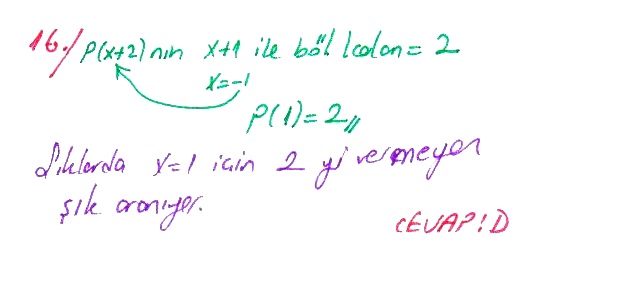 16./ P(x+2) nin x+1 ile böl kalan = 2
x=-1
P(1)=2//
Şıklarda x=1 için 2 yi vermeyen
şık aranıyor.
CEVAP: D